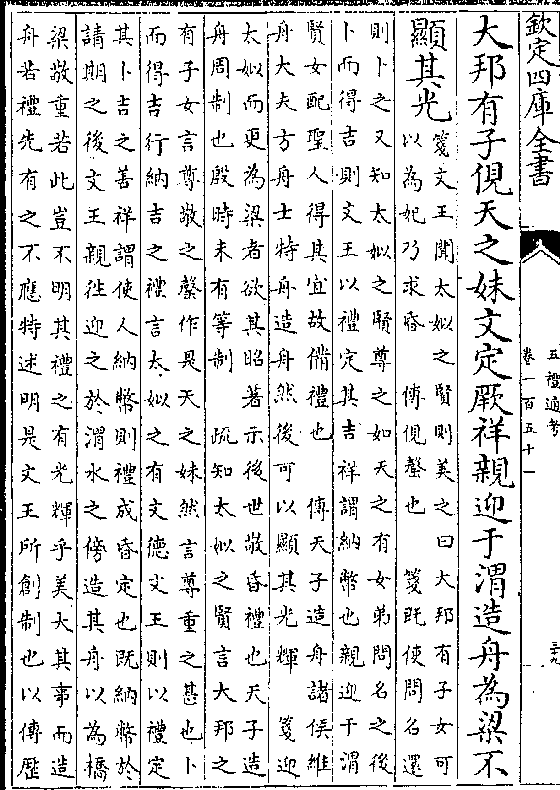 欽定四庫全書
五禮通考
卷一百五十一
三九
大邦有子俔天之妹文定厥祥親迎于渭造舟為梁不
顯其光
箋文王聞太姒之賢則美之曰大邦有子女可
以為妃乃求昏 傳俔磬也 箋既使問名還
則卜之又知太姒之賢尊之如天之有女弟問名之後
卜而得吉則文王以禮定其吉祥謂納幣也親迎于渭
賢女配聖人得其宜故備禮也 傳天子造舟諸侯維
舟大夫方舟士特舟造舟然後可以顯其光輝 箋迎
太姒而更為梁者欲其昭著示後世敬昏禮也天子造
舟周制也殷時未有等制 疏知太姒之賢言大邦之
有子女言尊敬之磬作是天之妹然言尊重之甚也卜
而得吉行納吉之禮言太姒之有文德文王則以禮定
其卜吉之善祥謂使人納幣則禮成昏定也既納幣於
請期之後文王親往迎之於渭水之傍造其舟以為橋
梁敬重若此豈不明其禮之有光輝乎美大其事而造
舟若禮先有之不應特述明是文王所創制也以傳歷